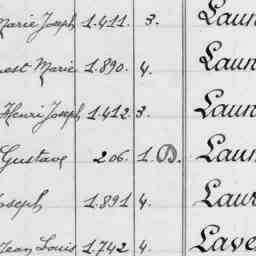 Marie Joseph 1.411. 3. Laun
nest Marie 1.890. 4. Laun
Henri Joseph 1.412 3. Laun
Gustave 206. 1. D. Laun
Joseph 1.891 4. Laur
Jean Louis 1.742 4. Lave